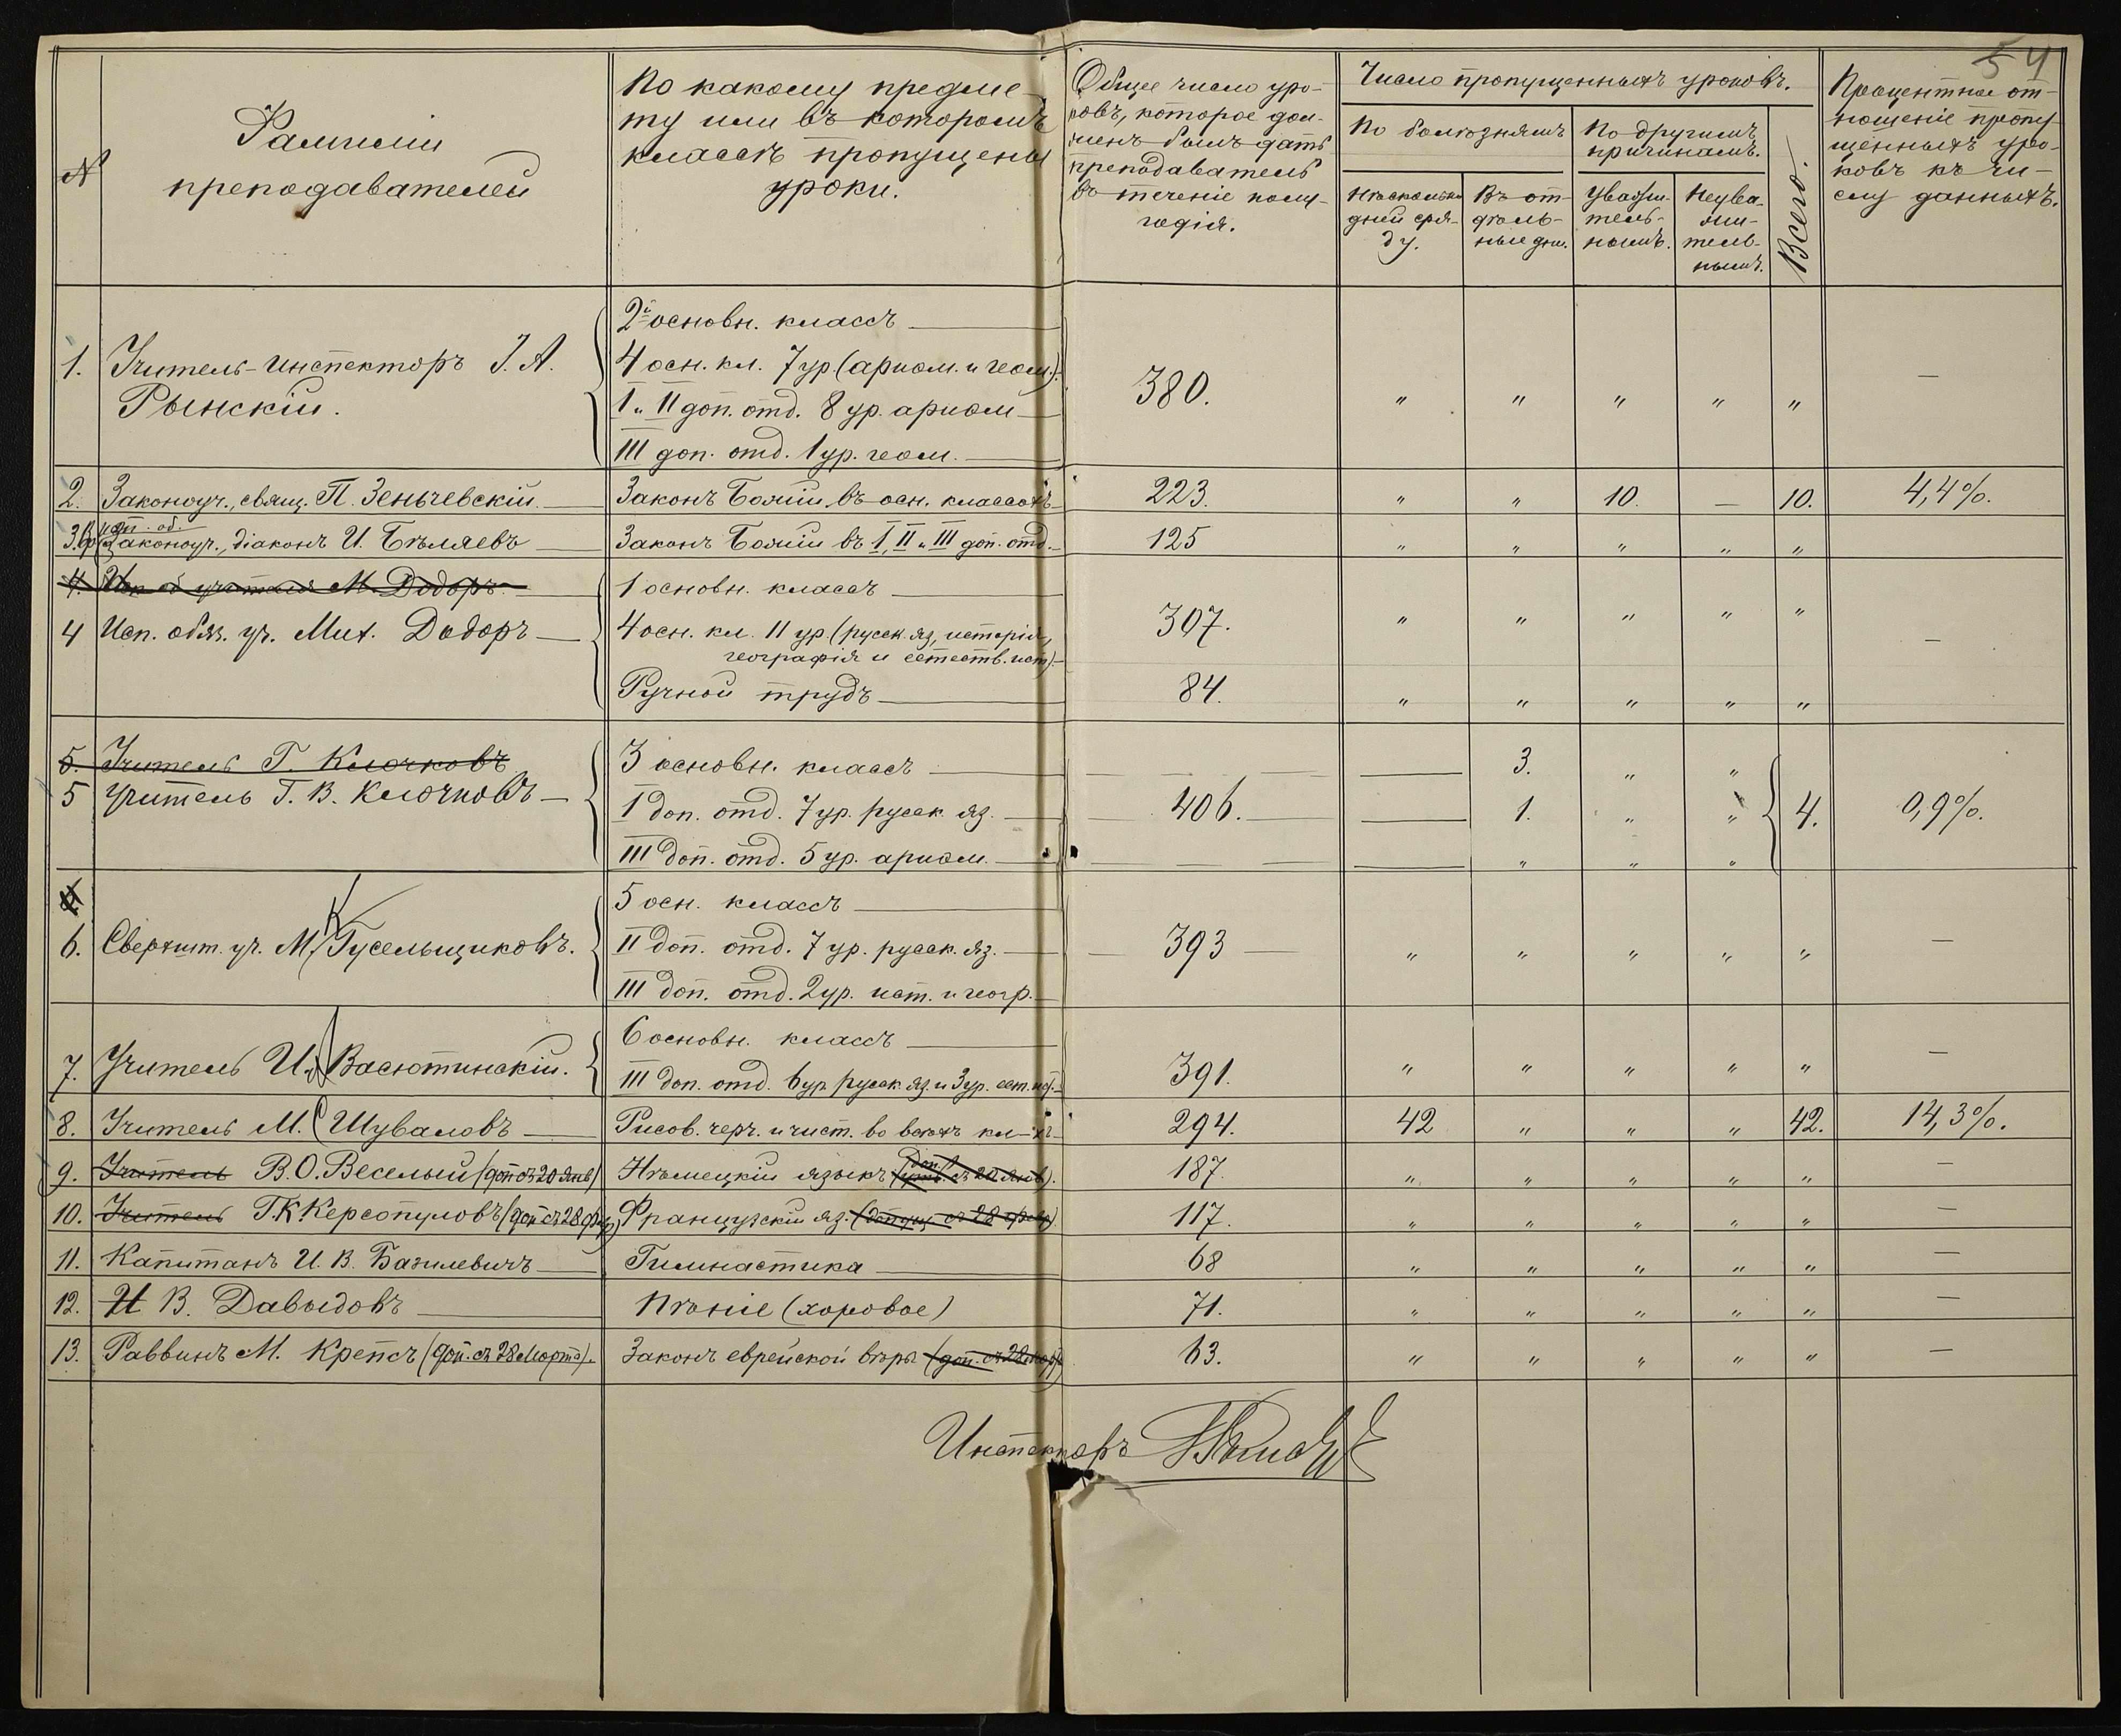 54
№
Фамиліи
преподавателей
По какому предме-
ту или въ которомъ
классѣ пропущены
уроки.
Общее число уро-
ковъ, которое дол-
женъ былъ дать
преподаватель
въ теченіе полу-
годія.
Число пропущенныхъ уроковъ.
По болѣзнямъ
По другимъ
причинамъ.
Нѣсколько
дней сря-
ду.
Въ от-
дѣль-
ные дни.
Уважи-
тель-
нымъ.
Неува-
жи-
тель-
нымъ.
Всего.
Процентное от-
ношеніе пропу-
щенныхъ уро-
ковъ къ чи-
слу данныхъ.
1. Учитель-инспекторъ І. А.
Рынскій.
2й основн. классъ
4 осн. кл. 7 ур. (ариѳм. и геом.).
I и II доп. отд. 8 ур. ариѳм
III доп. отд. 1 ур. геом.
380. " " " " " —
2. Законоуч., свящ. П. Зеньчевскій. Законъ Божій въ осн. классахъ 223. " " 10. — 10. 4,4%.
исп. об.
3. Законоуч., діаконъ И. Бѣляевъ Законъ Божій въ I, II и III доп. отд. 125 " " " " "
4. Исп. об. учителя М. Додоръ
4 Исп. обяз. уч. Мих. Додоръ
1 основн. классъ
4 осн. кл. 11 ур. (русск. яз., исторія,
географія и естеств. ист.)
307. " " " " " —
Ручной трудъ 84. " " " " "
5. Учитель Г. Клочковъ
5 Учитель Г. В. Клочковъ
3 основн. классъ — 3. " "
I доп. отд. 7 ур. русск. яз. 406. — 1. " " 4. 0,9%.
III доп. отд. 5 ур. ариѳм. — " " "
6. Сверхшт. уч. М. К. Гусельщиковъ.
5 осн. классъ
II доп. отд. 7 ур. русск. яз.
III доп. отд. 2 ур. ист. и геогр.
393 " " " " " —
7. Учитель И. Васютинскій.
6 основн. классъ
III доп. отд. 6 ур. русск. яз. и 3 ур. ест. ист.
391. " " " " " —
8. Учитель М. Шуваловъ Рисов. черч. и чист. во всѣхъ кл-хъ 294. 42 " " " 42. 14,3%.
9. Учитель В. О. Веселый (доп. съ 20 янв) Нѣмецкій языкъ (доп. съ 20 янв). 187. " " " " " —
10. Учитель Г. К. Керсопуловъ (доп. съ 28 фев) Французскій яз. (допущ. съ 28 февр) 117. " " " " " —
11. Капитанъ И. В. Базилевичъ Гимнастика 68 " " " " " —
12. И В. Давыдовъ Пѣніе (хоровое) 71. " " " " " —
13. Раввинъ М. Крепсъ (доп. съ 28 Марта). Законъ еврейской вѣры (доп. съ 28 мар) 63. " " " " " —
Инспекторъ